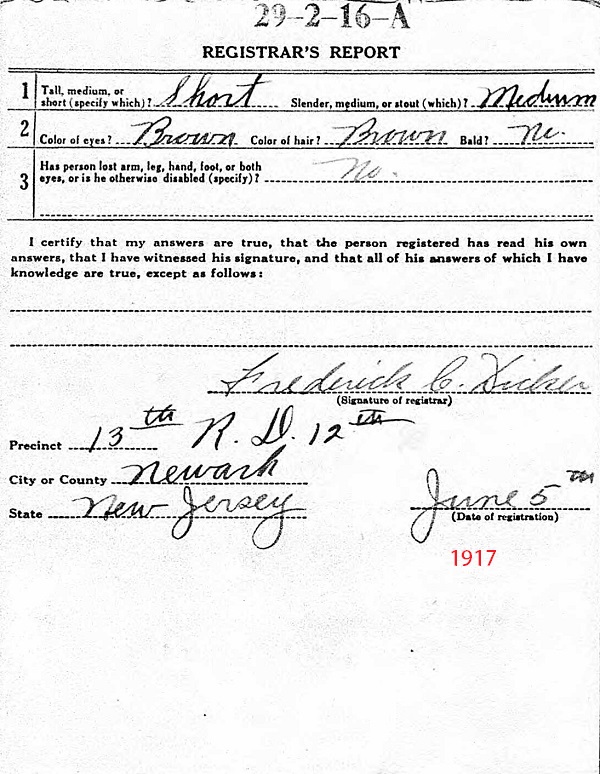 29-2-16-A
REGISTRAR'S REPORT
1 Tall, medium, or short (specify which)? Short Slender, medium, or stout (which)? Medium
2 Color of eyes? Brown Color of hair? Brown Bald? No.
3 Has person lost arm, leg, hand, foot, or both eyes, or is he otherwise disabled (specify)? No.
I certify that my answers are true, that the person registered has read his own
answers, that I have witnessed his signature, and that all of his answers of which I have
knowledge are true, except as follows:
Frederick C.
(Signature of registrar)
Precinct 13th R. D. 12th
City or County Newark
State New Jersey
June 5th
(Date of registration)
1917